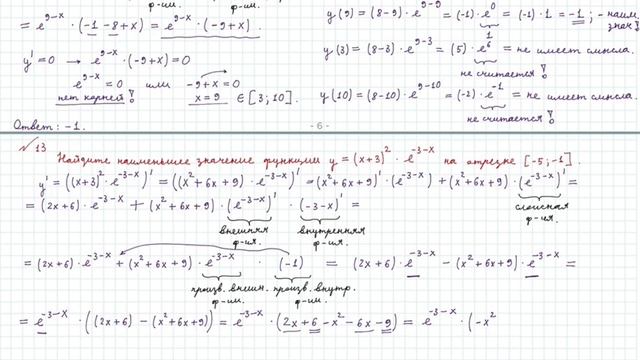 ф-ии. ф-ии.
= e^(9-x) · (-1-8+x) = e^(9-x) · (-9+x).
y' = 0 → e^(9-x) · (-9+x) = 0
e^(9-x) = 0 или -9+x = 0
нет корней! x = 9 ∈ [3; 10].
Ответ: -1.
y(9) = (8-9) · e^(9-9) = (-1) · e^0 = (-1) · 1 = -1; - наим. знач!
1
y(3) = (8-3) · e^(9-3) = (5) · e^6 = не имеет смысла.
не считается!
y(10) = (8-10) · e^(9-10) = (-2) · e^(-1) = не имеет смысла.
не считается!
- 6 -
√13 Найдите наименьшее значение функции y = (x+3)² · e^(-3-x) на отрезке [-5; -1].
y' = ((x+3)² · e^(-3-x))' = ((x²+6x+9) · e^(-3-x))' = (x²+6x+9)' · (e^(-3-x)) + (x²+6x+9) · (e^(-3-x))' =
= (2x+6) · e^(-3-x) + (x²+6x+9) · (e^(-3-x))' · (-3-x)' =
сложная ф-ия.
внешняя ф-ия. внутренняя ф-ия.
= (2x+6) · e^(-3-x) + (x²+6x+9) · e^(-3-x) · (-1) = (2x+6) · e^(-3-x) - (x²+6x+9) · e^(-3-x) =
произв. внешн. ф-ии. произв. внутр. ф-ии.
= e^(-3-x) · ((2x+6) - (x²+6x+9)) = e^(-3-x) · (2x+6-x²-6x-9) = e^(-3-x) · (-x²